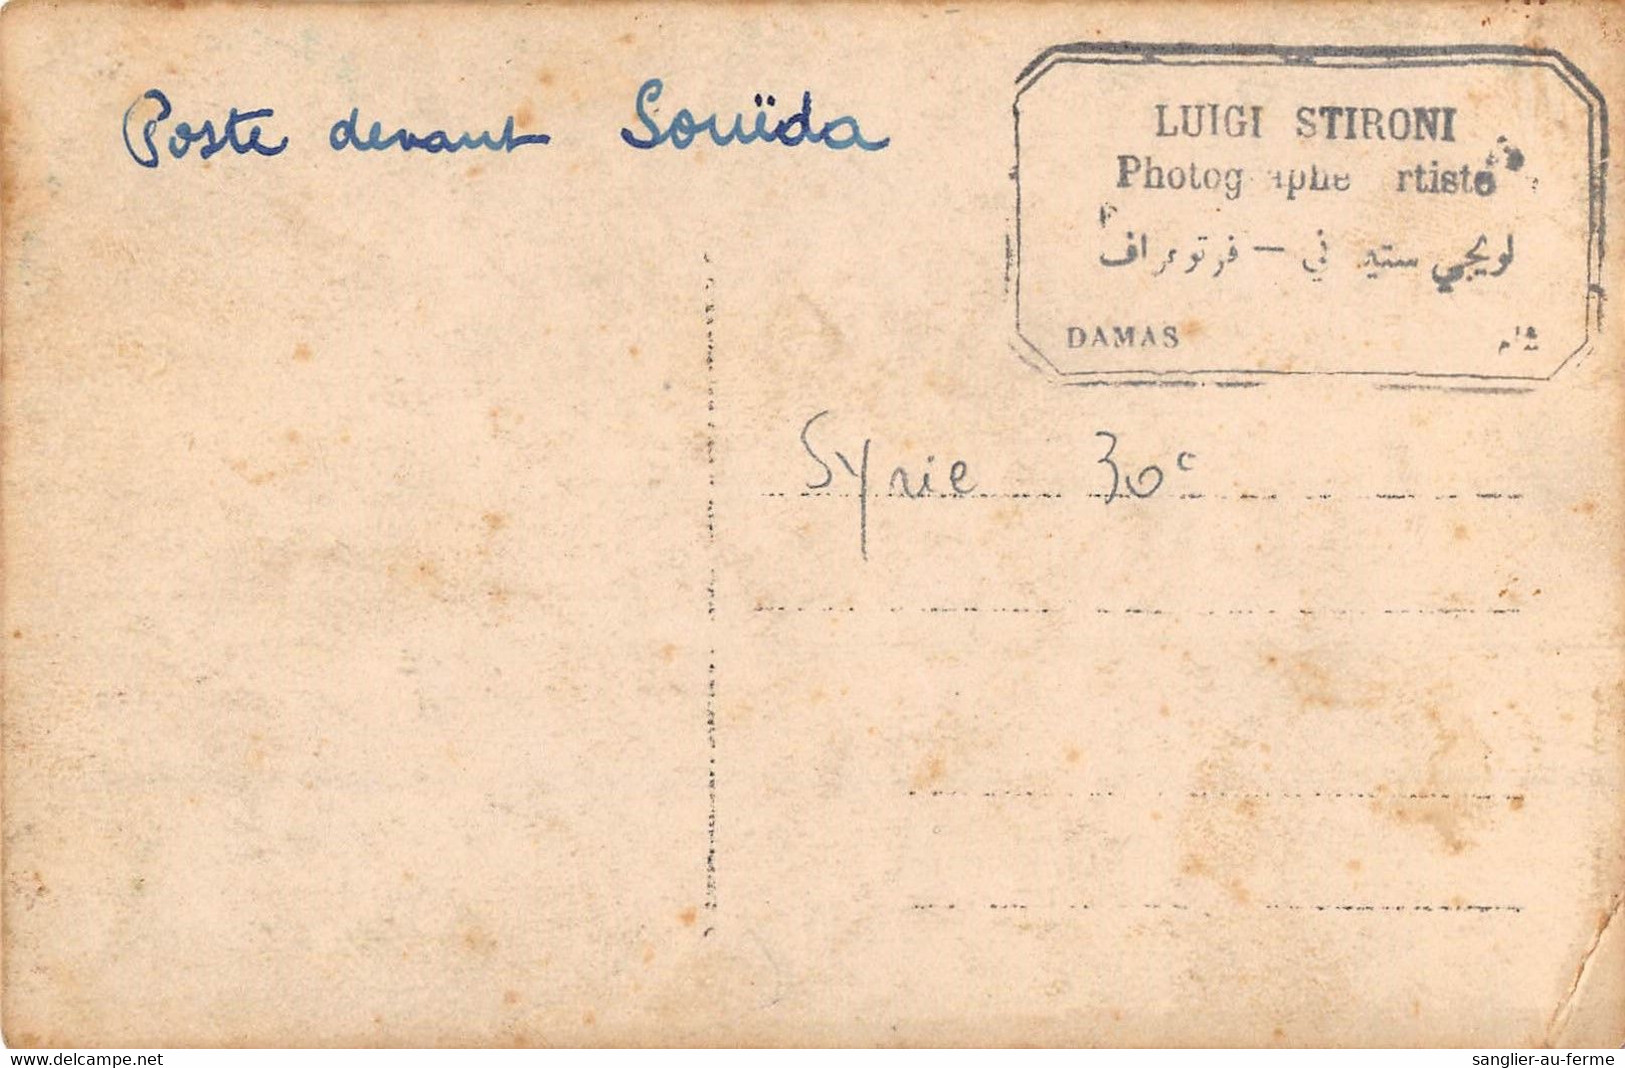 Poste devant Souïda
LUIGI STIRONI
Photographe rtiste
لويجي ستير ني - فرتوغراف
DAMAS شام
Syrie 30c
www.delcampe.net sanglier-au-ferme